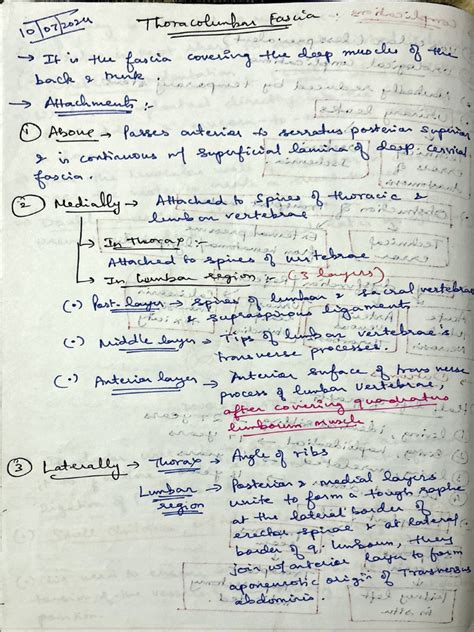 10/07/2024
Thoracolumbar Fascia.
→ It is the fascia covering the deep muscles of the
back & trunk.
→ Attachments :-
① Above → Passes anterior to serratus posterior superior
& is continuous w/ superficial lamina of deep cervical
fascia.
② Medially → Attached to spines of thoracic &
lumbar vertebrae
→ In thorax :-
Attached to spines of vertebrae
→ In lumbar region :- (3 layers)
(•) Post. layer → spines of lumbar & sacral vertebrae
& supraspinous ligaments
(•) Middle layer → Tips of lumbar vertebrae's
transverse processes.
(•) Anterior layer → Anterior surface of transverse
process of lumbar vertebrae,
after covering quadratus
lumborum muscle
③ Laterally → Thorax → Angle of ribs
Lumbar region → Posterior & medial layers
unite to form a tough raphe
at the lateral border of
erector spinae & at lateral
border of q. lumborum, they
join w/ anterior layer to form
aponeurotic origin of Transversus
abdominis